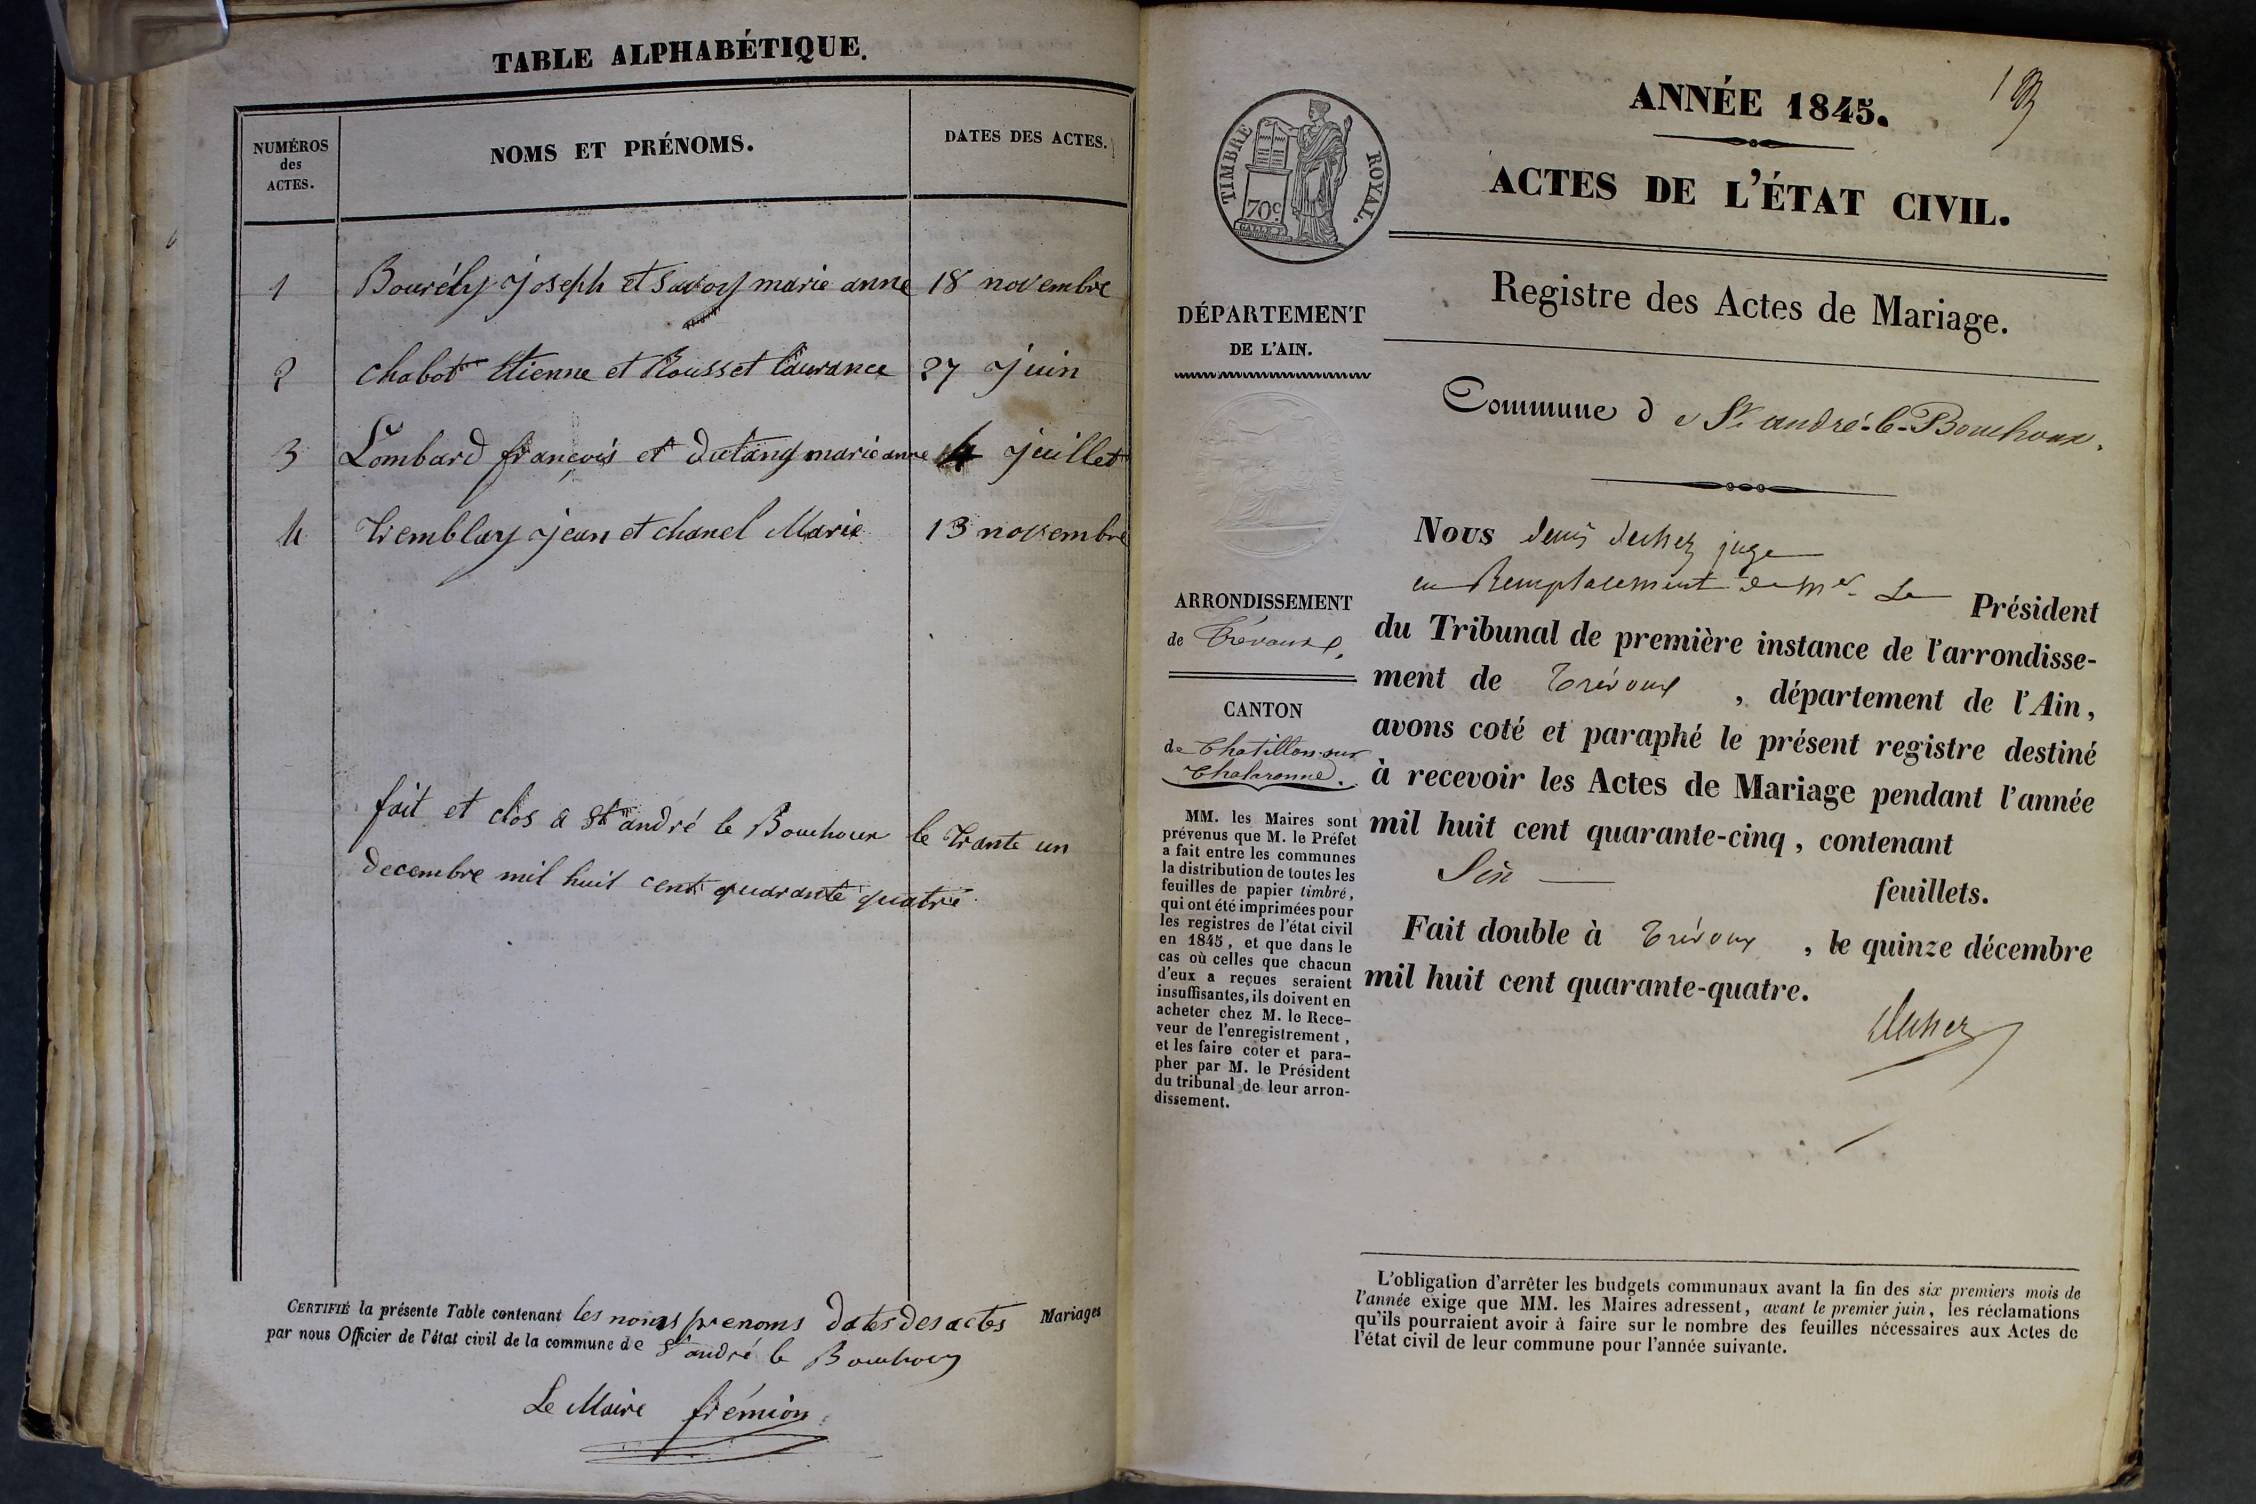 TABLE ALPHABÉTIQUE.
NUMÉROS
des
ACTES.
NOMS ET PRÉNOMS.
DATES DES ACTES.
1 Bourély joseph et Savoy marie anne 18 novembre
2 chabot Etienne et Rousset Laurance 27 juin
3 Lombard françois et dutang marie anne 4 juillet
4 Tremblay jean et chanel Marie 13 novembre
fait et clos a St andré le Bouchoux le trante un
decembre mil huit cent quarante quatre
CERTIFIÉ la présente Table contenant les noms prenoms dates des actes Mariages
par nous Officier de l'état civil de la commune de St andré le Bouchoux
Le Maire frémion
ANNÉE 1845.
ACTES DE L'ÉTAT CIVIL.
TIMBRE ROYAL.
70c
Registre des Actes de Mariage.
DÉPARTEMENT
DE L'AIN.
Commune de St. andré-le-Bouchoux.
ARRONDISSEMENT
de Trévoux.
CANTON
de Chatillon-sur
Chalaronne.
MM. les Maires sont
prévenus que M. le Préfet
a fait entre les communes
la distribution de toutes les
feuilles de papier timbré,
qui ont été imprimées pour
les registres de l'état civil
en 1845, et que dans le
cas où celles que chacun
d'eux a reçues seraient
insuffisantes, ils doivent en
acheter chez M. le Rece-
veur de l'enregistrement,
et les faire coter et para-
pher par M. le Président
du tribunal de leur arron-
dissement.
Nous juge
en Remplacement de Mr. Le Président
du Tribunal de première instance de l'arrondisse-
ment de Trévoux, département de l'Ain,
avons coté et paraphé le présent registre destiné
à recevoir les Actes de Mariage pendant l'année
mil huit cent quarante-cinq, contenant
Six feuillets.
Fait double à Trévoux, le quinze décembre
mil huit cent quarante-quatre.
L'obligation d'arrêter les budgets communaux avant la fin des six premiers mois de
l'année exige que MM. les Maires adressent, avant le premier juin, les réclamations
qu'ils pourraient avoir à faire sur le nombre des feuilles nécessaires aux Actes de
l'état civil de leur commune pour l'année suivante.